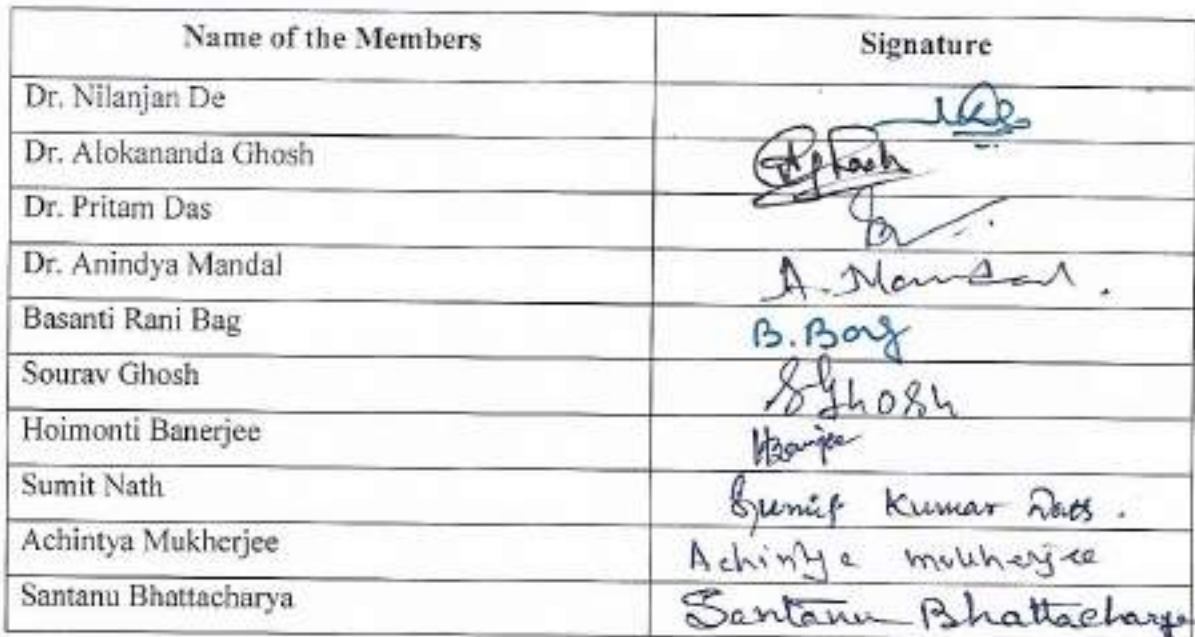 Name of the Members Signature
Dr. Nilanjan De
Dr. Alokananda Ghosh
Dr. Pritam Das
Dr. Anindya Mandal A. Mandal.
Basanti Rani Bag B. Bag
Sourav Ghosh SGhosh
Hoimonti Banerjee HBanerjee
Sumit Nath Sumit Kumar
Achintya Mukherjee Achintya Mukherjee
Santanu Bhattacharya Santanu Bhattacharya